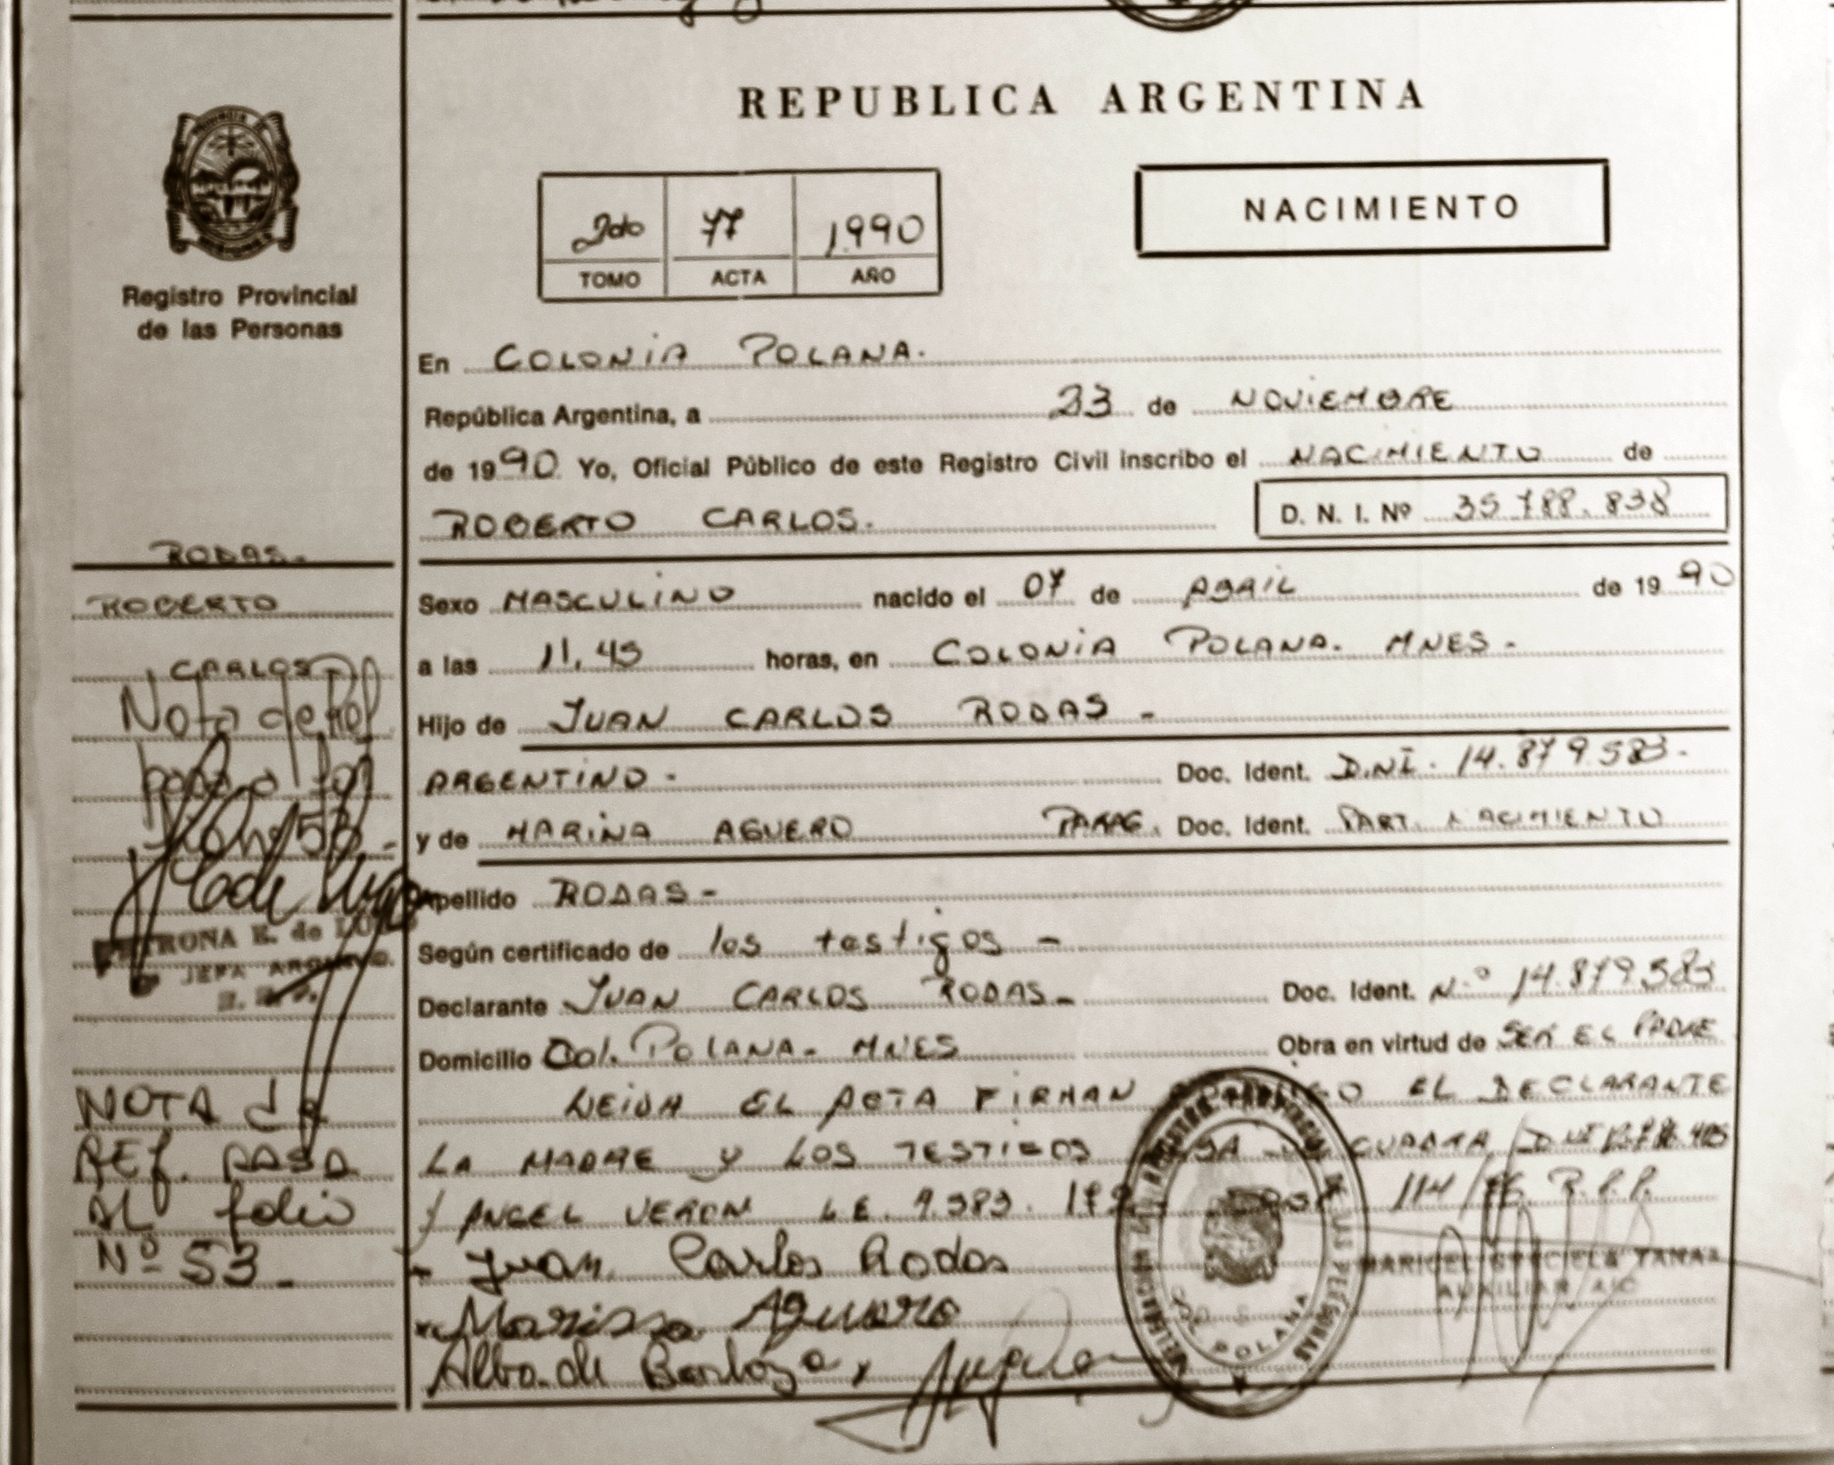 REPUBLICA ARGENTINA
2do 77 1990
TOMO ACTA AÑO
NACIMIENTO
Registro Provincial
de las Personas
En COLONIA POLANA.
República Argentina, a 23 de NOVIEMBRE
de 1990 Yo, Oficial Público de este Registro Civil inscribo el NACIMIENTO de
ROBERTO CARLOS. D. N. I. Nº 35 788.838
Sexo MASCULINO nacido el 07 de ABRIL de 1990
a las 11,45 horas, en COLONIA POLANA. MNES -
Hijo de JUAN CARLOS RODAS -
ARGENTINO - Doc. Ident. D.NI. 14.879.583-
y de MARINA AGUERO PARAG. Doc. Ident. PART. NACIMIENTO
Apellido RODAS -
Según certificado de los testigos -
Declarante JUAN CARLOS RODAS - Doc. Ident. N.º 14.879.583
Domicilio Col. POLANA - MNES Obra en virtud de SER EL PADRE
LEIDA EL ACTA FIRMAN EL DECLARANTE
LA MADRE y LOS TESTIGOS
y ANGEL VERON L.E. 114/ R.P.P.
Juan Carlos Rodas
Marissa Aguero
Alba de Barboza
MARICEL GRACIELA
AUXILIAR
COL POLANA
RODAS -
ROBERTO
CARLOS
Nota de Ref
53 -
PETRONA E. de
JEFA ARCHIVO
NOTA de
REf. PASA
AL folio
Nº 53 -